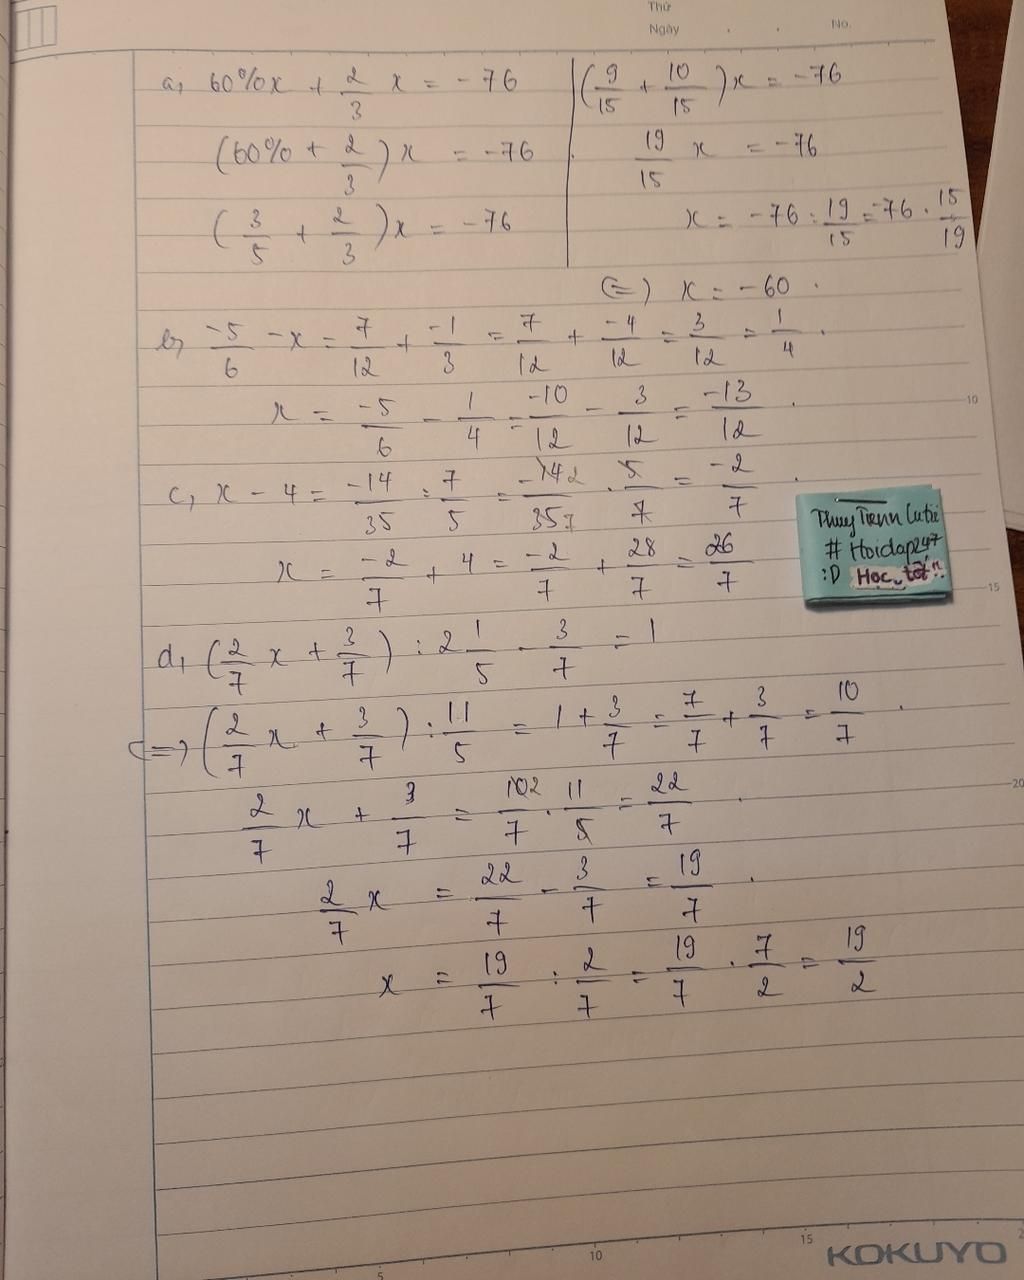 Thứ
Ngày . . No.
a, 60%x + 2/3 x = -76
(60% + 2/3)x = -76
(3/5 + 2/3)x = -76
(9/15 + 10/15)x = -76
19/15 x = -76
x = -76 : 19/15 = -76 . 15/19
(=) x = -60 .
b, -5/6 - x = 7/12 + -1/3 = 7/12 + -4/12 = 3/12 = 1/4 .
x = -5/6 - 1/4 = -10/12 - 3/12 = -13/12 .
10
c, x - 4 = -14/35 : 7/5 = -14 2/35 7 . 5/7 = -2/7 .
x = -2/7 + 4 = -2/7 + 28/7 = 26/7
Thuy Tienn Cutie
# Hoidap247
:D Học tốt!!
15
d, (2/7 x + 3/7) : 2 1/5 - 3/7 = 1
(=) (2/7 x + 3/7) : 11/5 = 1 + 3/7 = 7/7 + 3/7 = 10/7 .
2/7 x + 3/7 = 10 2/7 . 11/5 = 22/7 .
20
2/7 x = 22/7 - 3/7 = 19/7 .
x = 19/7 : 2/7 = 19/7 . 7/2 = 19/2
5 10 15 2
KOKUYO